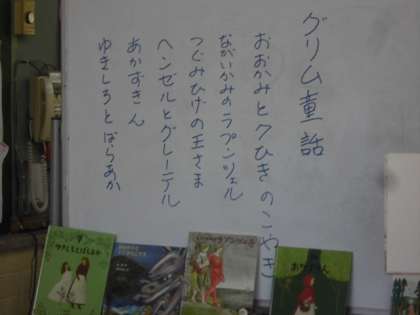 グリム童話
おおかみと7ひきのこやぎ
ながいかみのラプンツェル
つぐみひげの王さま
ヘンゼルとグレーテル
あかずきん
ゆきしろとばらあか